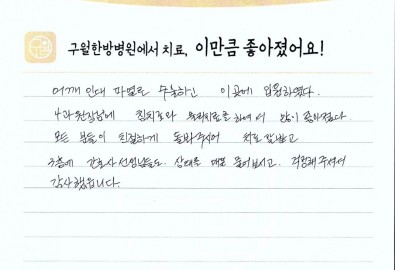 구월한방병원에서 치료, 이만큼 좋아졌어요!
어깨 인대 파열로 수술하고 이곳에 입원하였다.
4과 원장님에 침치료와 물리치료를 하여서 많이 좋아졌다.
모든 분들이 친절하게 돌봐주시어 치료 잘받고
3층에 간호사 선생님들도 상태를 매일 물어보시고 걱정해 주셔서
감사했습니다.